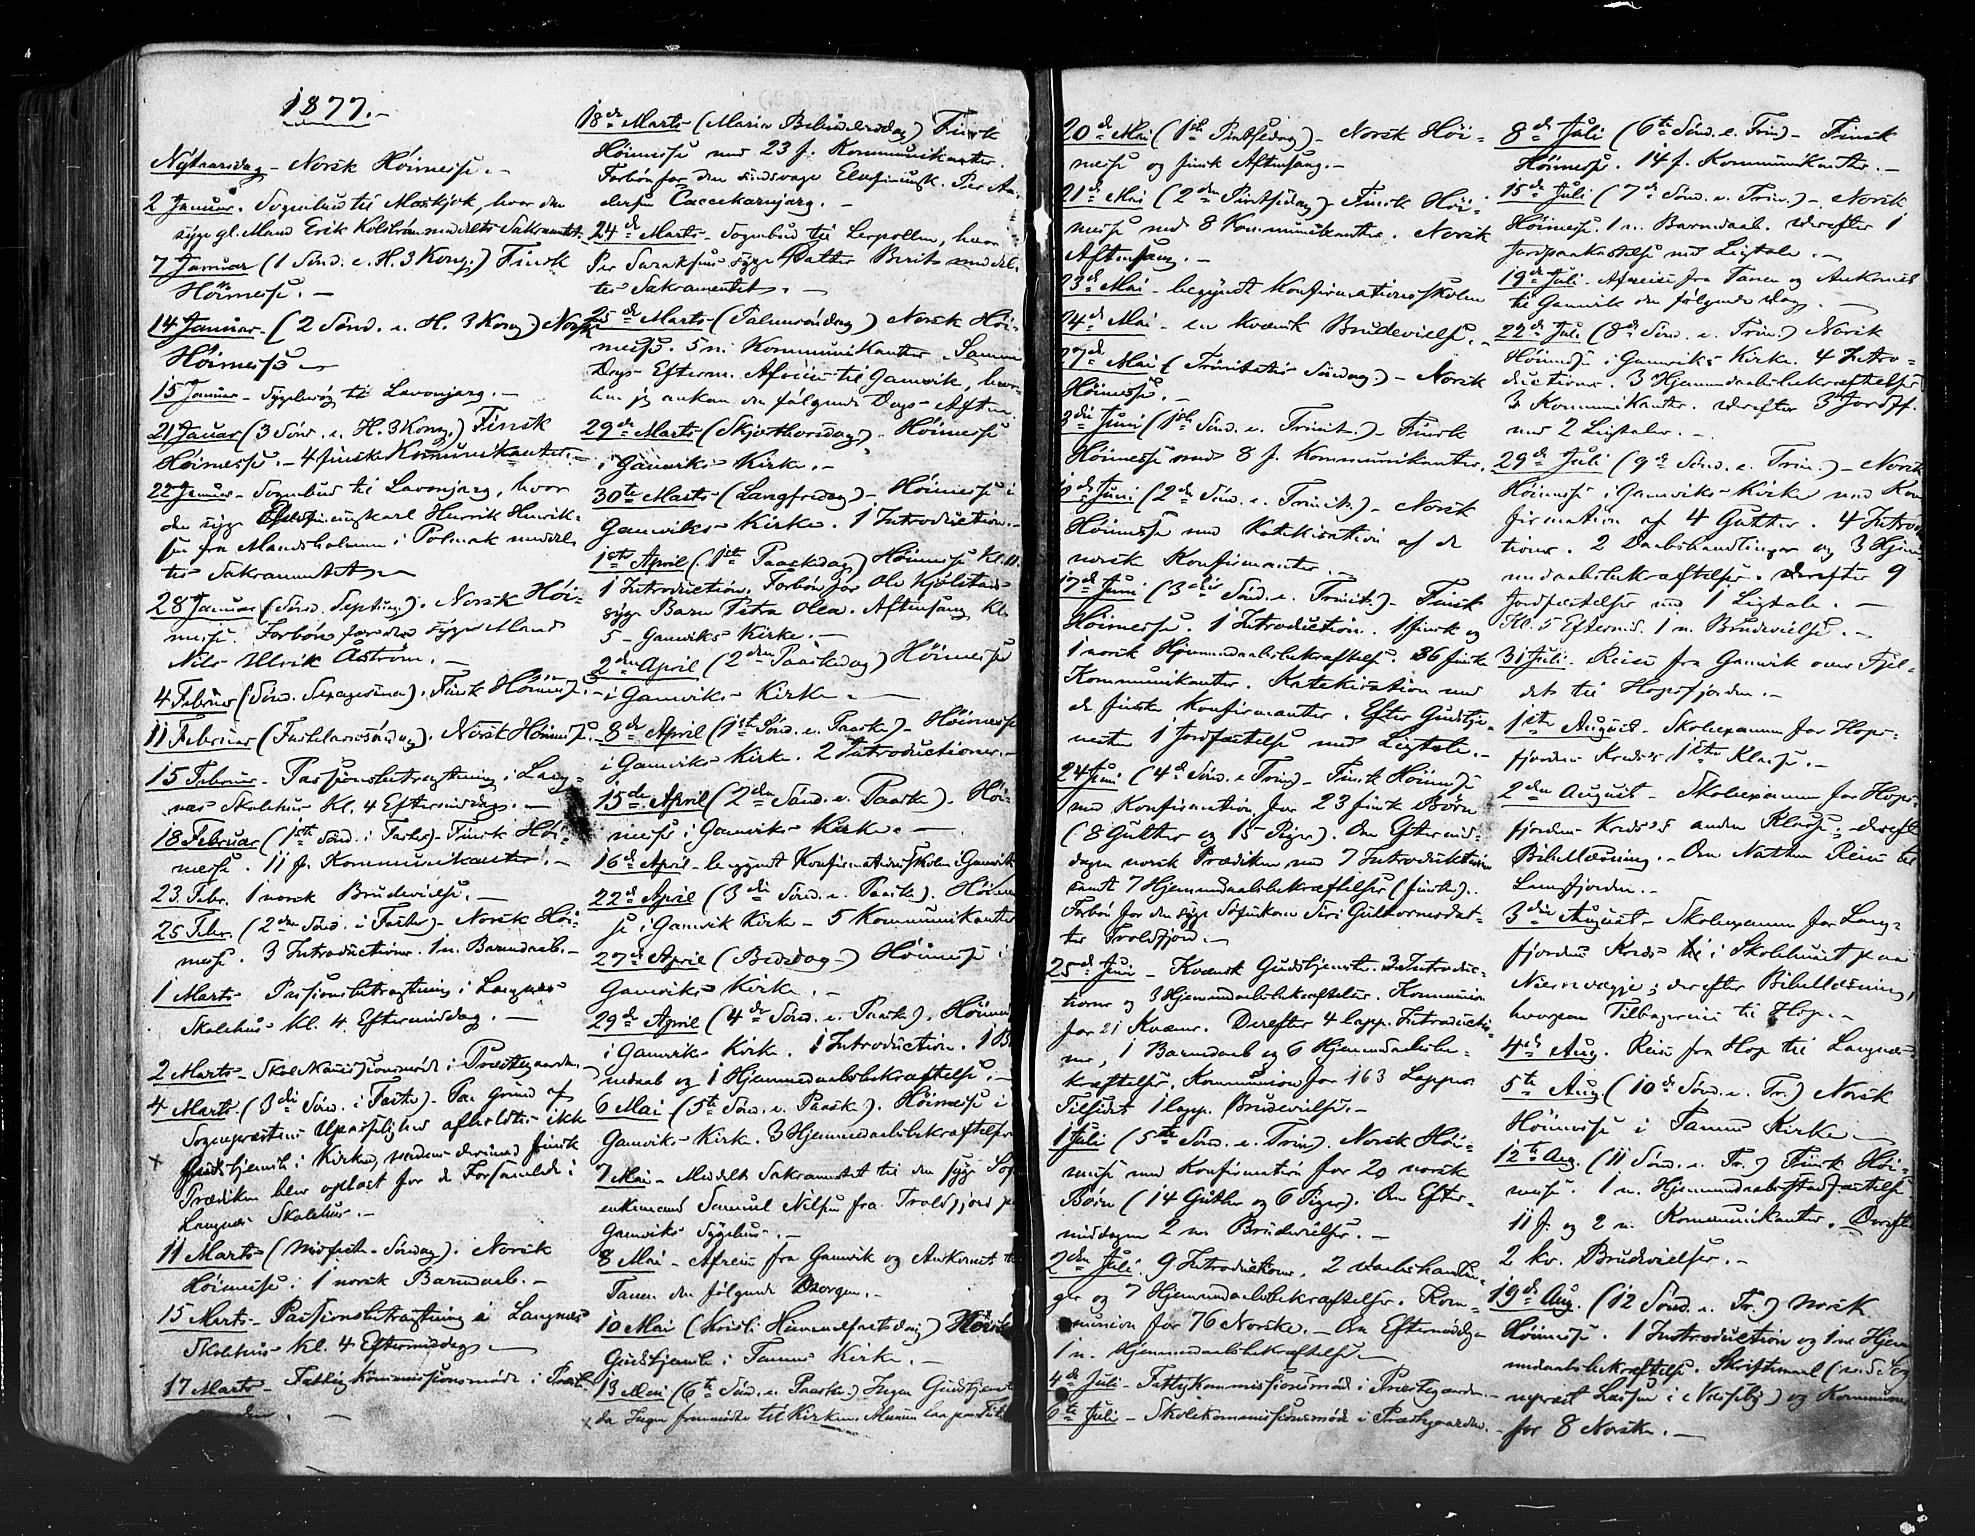 1877.-
Nytaarsdag - Norsk Høimesse. -
2 Januar. Sognebud til Maskjok, hvor den
syge gl. Mand Erik Kolström meddeltes Sakramentet.
7 Januar (1 Sönd. e. H. 3 Kong.) Finsk
Høimesse. -
14 Januar. (2 Sönd. e. H. 3 Kong) Norsk
Høimesse -
15 Januar - Sygebesøg til Lavonjarg. -
21 Januar (3 Sönd. e. H. 3 Kong.) Finsk
Høimesse. - 4 finske Kommunikanter. -
22 Januar - Sognebud til Lavonjarg, hvor
den syge Henrik Henrik-
sen fra Mandsholmen i Polmak meddel-
tes Sakramentet -
28 Januar (Sönd. Septuag.). Norsk Høi-
messe. Forbøn for den syge Mand
Nils Ulrik Åström. -
4 Februar (Sönd. Sexagesima). Finsk Høimesse. -
11 Februar (Fastelavnssöndag). Norsk Høimesse.
15 Februar - Passionsbetragtning i Lang-
næs Skolehus Kl. 4 Eftermiddag. -
18 Februar (1ste Sönd. i Faste) - Finsk Høi-
messe. 11 f. Kommunikanter. -
23. Febr. 1 norsk Brudevielse. -
25 Febr. (2den Sönd. i Faste) - Norsk Høi-
messe. 3 Introductioner. 1 n. Barnedaab. -
1 Marts Passionsbetragtning i Langnæs
Skolehus Kl. 4 Eftermiddag. -
2 Marts - Skolekommissionsmøde i Præstegaarden. -
4 Marts - (3die Sönd. i Faste) - Paa Grund af
Sognepræstens Upasselighed afholdtes ikke
Gudstjeneste i Kirken, medens derimod finsk
Prædiken blev oplæst for de Forsamlede i
Langnæs Skolehus. -
11 Marts - (Midfaste - Söndag). Norsk
Høimesse. 1 norsk Barnedaab. -
15 Marts - Passionsbetragtning i Langnæs
Skolehus Kl. 4 Eftermiddag -
17 Marts - Fattigkommissionsmøde i Præste-
gaarden. -
18de Marts - (Maria Bebudelsesdag) Finsk
Høimesse med 23 f. Kommunikanter.
Forbøn for den sindsvage Per An-
dersen Caccekarnjarg. -
24de Marts - Sognebud til Lerpollen, hvor
Per Saraksens syge Datter Berit meddel-
tes Sakramentet. -
25de Marts - (Palmesöndag) Norsk Høi-
messe. 5 n. Kommunikanter. Samme
Dags Efterm. Afreise til Gamvik, hvor-
hen jeg ankom den følgende Dags Aften.
29de Marts - (Skjærthorsdag). Høimesse
i Gamviks Kirke. -
30te Marts - (Langfredag) - Høimesse i
Gamviks Kirke. 1 Introduction. -
1ste April (1ste Paaskedag) Høimesse Kl. 11.
1 Introduction. Forbøn for Ole Kjölstads
syge Barn Petra Olea. Aftensang Kl.
5 - Gamviks Kirke. -
2den April (2den Paaskedag) Høimesse
i Gamviks Kirke. -
8de April (1ste Sönd. e. Paaske) - Høimesse
i Gamviks Kirke. 2 Introductioner. -
15de April (2den Sönd. e. Paaske). Høi-
messe i Gamviks Kirke. -
16de April - begyndt Konfirmationsskolen i Gamvik
22de April (3die Sönd. e. Paaske). Høimes-
se i Gamvik Kirke - 5 Kommunikanter
27de April (Bededag -) Høimesse i
Gamviks Kirke. -
29de April (4de Sönd. e. Paaske). Høimesse
i Gamviks Kirke. 1 Introduction. 1 Bar-
nedaab og 1 Hjemmedaabsbekræftelse. -
6 Mai - (5te Sönd. e. Paaske). Høimesse i
Gamviks Kirke. 3 Hjemmedaabsbekræftelser
7 Mai - Meddelt Sakramentet til den syge
Samuel Nilsen fra Troldfjord paa
Gamviks Sygehus. -
8 Mai - Afreise fra Gamvik og Ankomst til
Tanen den følgende Morgen. -
10 Mai (Kristi Himmelfartsdag)
Gudstjeneste i Tanens Kirke. -
13 Mai (6te Sönd. e. Paaske.) Ingen Gudstjeneste
da Ingen fremmødte til Kirken.
20de Mai (1ste Pintsedag) - Norsk Høi-
messe og finsk Aftensang. -
21de Mai (2den Pintsedag) - Finsk Høi-
messe med 8 Kommunikanter. Norsk
Aftensang. -
23de Mai - begyndt Konfirmationsskolen
24de Mai - en kvænsk Brudevielse. -
27de Mai (Trinitatis Söndag) - Norsk
Høimesse. -
3die Juni (1ste Sönd. e. Trinit.) - Finsk
Høimesse med 8 f. Kommunikanter.
10de Juni (2den Sönd. e. Trinit.) - Norsk
Høimesse med Katekisation af de
norske Konfirmanter. -
17de Juni (3die Sönd. e. Trinit.) - Finsk
Høimesse. 1 Introduction. 1 finsk og
1 norsk Hjemmedaabsbekræftelse. 36 finske
Kommunikanter. Katekisation med
de finske Konfirmanter. Efter Gudstje-
nesten 1 Jordfæstelse med Ligtale. -
24 Juni (4de Sönd. e. Trin) - Finsk Høimesse
med Konfirmation for 23 finske Børn
(8 Gutter og 15 Piger). Om Eftermid-
dagen norsk Prædiken med 7 Introduktioner
samt 7 Hjemmedaabsbekræftelser (finske).
Forbøn for den syge Søfinkone Siri Guttormsdat-
ter Troldfjord. -
25de Juni - Kvænsk Gudstjeneste. 3 Introduc-
tioner og 3 Hjemmedaabsbekræftelser. Kommunion
for 21 Kvæner. Derefter 4 lapp. Introductio-
ner, 1 Barnedaab og 6 Hjemmedaabsbe-
kræftelser. Kommunion for 163 Lapper.
Tilsidst 1 lapp. Brudevielse. -
1 Juli (5te Sönd. e. Trin). Norsk Høi-
messe med Konfirmation for 20 norske
Børn (14 Gutter og 6 Piger). Om Efter-
middagen 2 n. Brudevielser. -
2den Juli. 9 Introductioner. 2 Daabshandlin-
ger og 7 Hjemmedaabsbekræftelser. Kom-
munion for 76 Norske. - Om Eftermiddagen
1 n. Hjemmedaabsbekræftelse -
4de Juli - Fattigkommissionsmøde i Præstegaarden -
6te Juli - Skolekommissionsmøde i Præstegaarden. -
8de Juli (6te Sönd. e. Trin) - Finsk
Høimesse. 14 f. Kommunikanter. -
15de Juli (7de Sönd. e. Trin.) - Norsk
Høimesse. 1 n. Barnedaab. Derefter 1
Jordpaakastelse med Ligtale. -
19de Juli. Afreise fra Tanen og Ankomst
til Gamvik den følgende Dag. -
22de Juli (8de Sönd. e. Trin.) Norsk
Høimesse i Gamviks Kirke. 4 Intro-
ductioner. 3 Hjemmedaabsbekræftelser
3 Kommunikanter. Derefter 3 Jordf.
med 2 Ligtaler. -
29de Juli (9de Sönd. e. Trin.) - Norsk
Høimesse i Gamviks Kirke med Kon-
firmation af 4 Gutter. 4 Introduc-
tioner. 2 Daabshandlinger og 3 Hjem-
medaabsbekræftelser. Derefter 9
Jordfæstelser med 1 Ligtale. -
Kl. 5 Eftermid. 1 n. Brudevielse. -
31 Juli. Reise fra Gamvik over Fjel-
det til Hopsfjorden. -
1ste August - Skolexamen for Hops-
fjorden Kreds's 1ste Klasse. -
2den August - Skolexamen for Hops-
fjorden Kreds's anden Klasse; derefter
Bibellæsning. - Om Natten Reise til
Langfjorden. -
3die August - Skolexamen for Lang-
fjordens Kreds i Skolehuset paa
Niernvægge; derefter Bibellæsning,
hvorpaa Tilbagereise til Hop. -
4de Aug. Reise fra Hop til Langnæs
5te Aug (10de Sönd. e. Tr.) Norsk
Høimesse i Tanens Kirke -
12te Aug. (11 Sönd. e. Tr.) Finsk Høi-
messe. 1 n. Hjemmedaabsstadfæstelse
11 f. og 2 n. Kommunikanter. Derefter
2 kv. Brudevielser. -
19de Aug. (12 Sönd. e. Tr.) Norsk
Høimesse. 1 Introduction og 1 n. Hjem-
medaabsbekræftelse. Skriftemaal (ved Sog-
nepræst Larsen i Næseby) og Kommunion
for 8 Norske. -